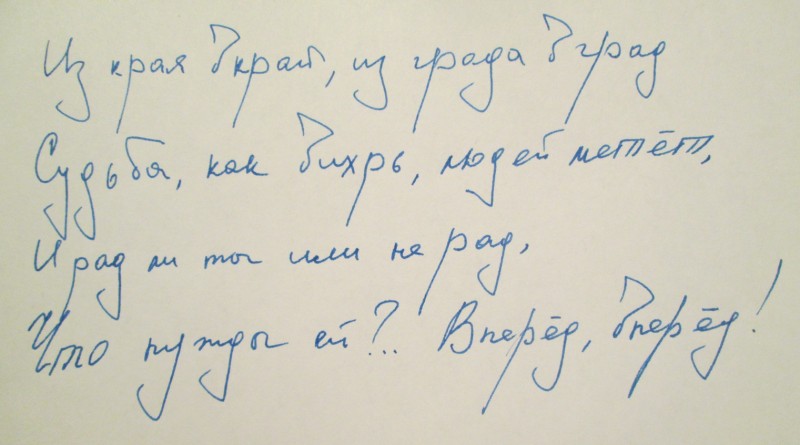 Из края в край, из града в град
Судьба, как вихрь, людей метёт,
И рад ли ты или не рад,
Что нужды ей?.. Вперёд, вперёд!